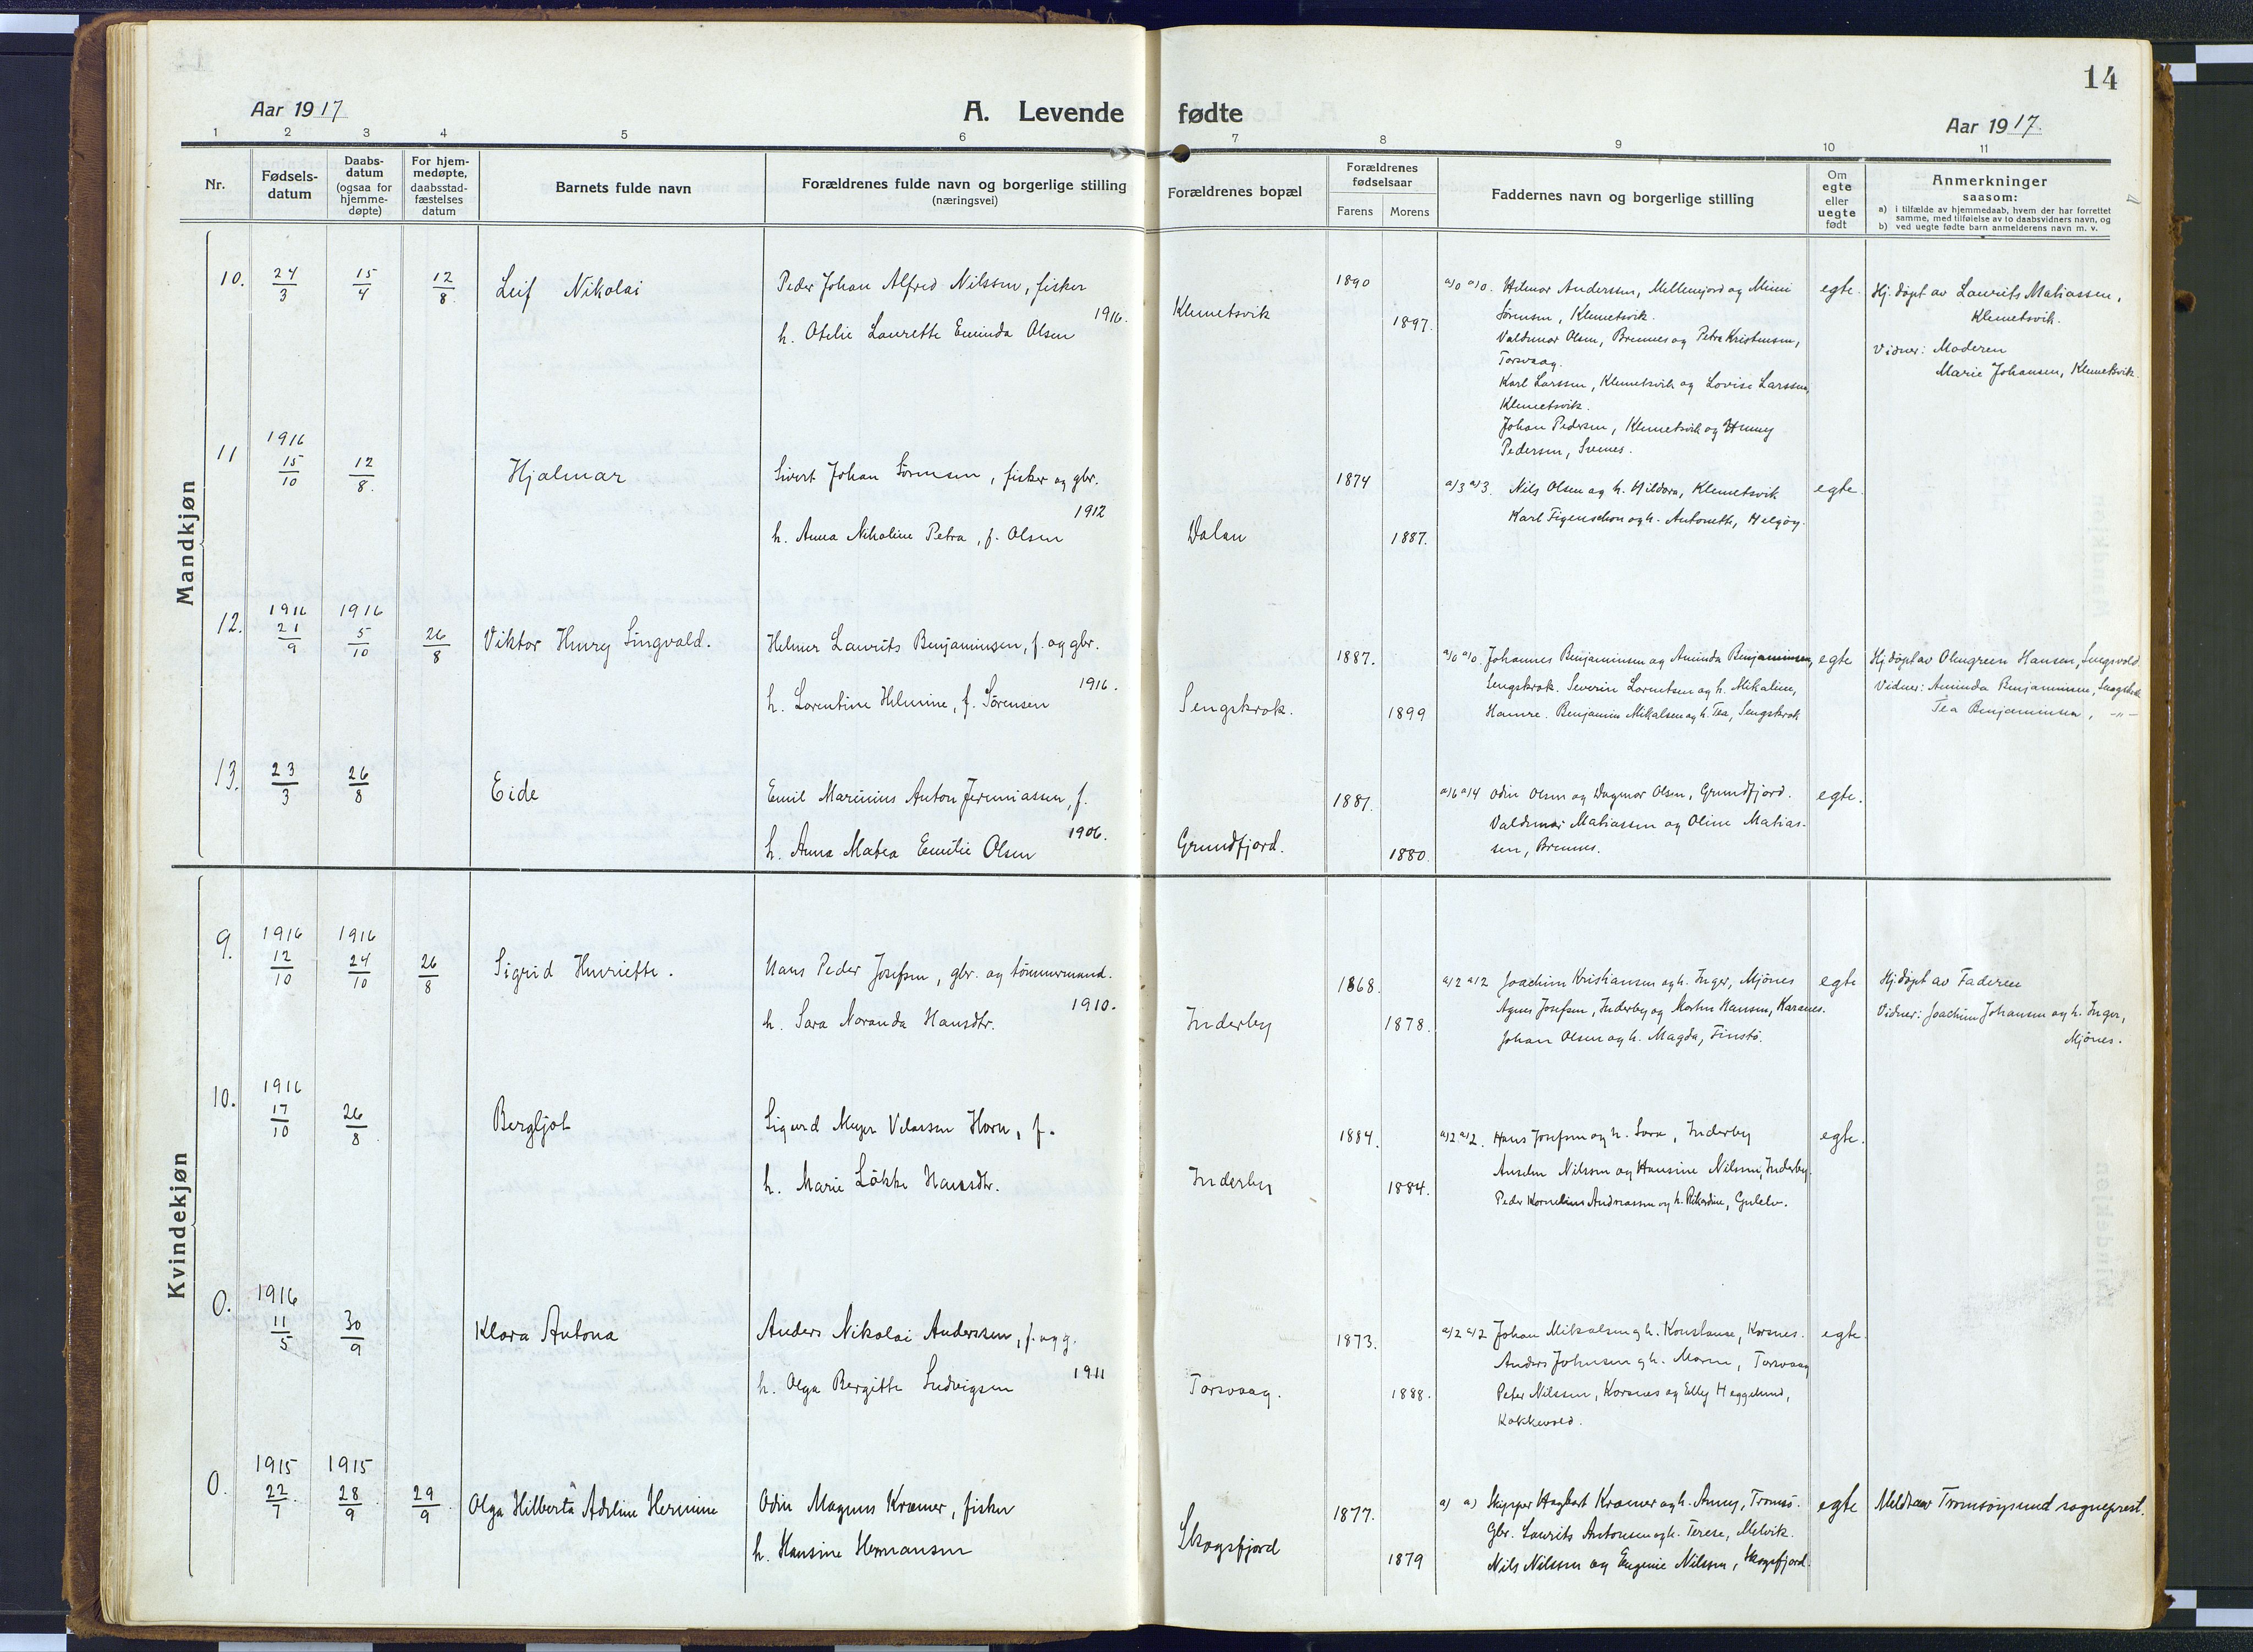 14
Aar 1917
A. Levende fødte
Aar 1917.
1 2 3 4 5 6 7 8 9 10 11
Nr.
Fødsels-
datum
Daabs-
datum
(ogsaa for
hjemme-
døpte)
For hjem-
medøpte,
daabsstad-
fæstelses
datum
Barnets fulde navn
Forældrenes fulde navn og borgerlige stilling
(næringsvei)
Forældrenes bopæl
Forældrenes
fødselsaar
Farens Morens
Faddernes navn og borgerlige stilling
Om
egte
eller
uegte
født
Anmerkninger
saasom:
a) i tilfælde av hjemmedaab, hvem der har forrettet
samme, med tilføielse av to daabsvidners navn, og
b) ved uegte fødte barn anmelderens navn m. v.
Mandkjøn
10. 24/3 15/4 12/8. Leif Nikolai
Peder Johan Alfred Nilssen, fisker
1916.
h. Otelie Laurette Eminda Olsen
Klemetsvik
1890
1897.
a/0 a/0. Hilmar Anderssen, Mellemjord og Mimi
Sørensen, Klemetsvik.
Valdemar Olsen, Bremnes og Petra Kristensen,
Torsvaag.
Karl Larssen, Klemetsvik og Lovise Larssen,
Klemetsvik.
Johan Pedersen, Klemetsvik og Henny
Pedersen,
egte.
Hj. døpt av Laurits Matiassen,
Klemetsvik.
Vidner: Moderen
Marie Johansen, Klemetsvik.
11 1916 15/10 12/8. Hjalmar
Sivert Johan Sørensen, fisker og gbr.
1912
h. Anna Nikoline Petra, f. Olsen
Dalan
1874
1887.
a/3 a/3. Nils Olsen og h. Hildora, Klemetsvik
Karl Figenschou og h. Antonette, Helgøy.
egte.
12. 1916 21/9 1916 5/10 26/8 Viktor Henry Singvald.
Helmer Laurits Benjaminsen, f. og gbr.
1916.
h. Lorentine Helmine, f. Sørensen
Sengskrok.
1887.
1899
a/0 a/0. Johannes Benjaminsen og Aminda Benjaminsen,
Sengskrok. Severin Lorentsen og h. Mikaline,
Hamre. Benjamin Mikalsen og h. Tea, Sengskrok
egte
Hj. døpt av Olengreen Hansen,
Vidner: Aminda Benjaminsen, Sengskrok
Tea Benjaminsen, -"-
13. 23/3 26/8 Eide
Emil Marinius Anton Jeremiassen, f.
1906.
h. Anna Matea Emilie Olsen
Grundfjord.
1881.
1880.
a/6 a/4 Odin Olsen og Dagmar Olsen, Grundfjord.
Valdemar Matiassen og Oline Matias-
sen, Bremnes.
egte.
Kvindekjøn
9. 1916 12/10 1916 24/10 26/8 Sigrid Henriette.
Hans Peder Josefsen, gbr. og tømmermand.
1910.
h. Sara Noranda Hansdtr.
Inderby
1868.
1878.
a/2 a/2 Joachim Kristiansen og h. Inger, Mjönes
Agnes Josefsen, Inderby og Martin Hansen, Karsnes.
Johan Olsen og h. Magda, Finstø.
egte
Hj. døpt av Faderen
Vidner: Joachim Johansen og h. Inger,
Mjönes.
10. 1916 17/10 26/8 Bergljot
Sigurd Meyer Horn, f.
h. Marie Løkke Hansdtr.
Inderby
1884.
1884.
a/2 a/2. Hans Josefsen og h. Sara, Inderby
Anselm Nilssen og Hansine Nilssen, Inderby.
Peder Kornelius Andreassen og h. Rikardine,
egte.
0. 1916 11/5 30/9 Klara Antona
Anders Nikolai Anderssen, f. og g.
1911
h. Olga Bergitte Ludvigsen
Torsvaag.
1873.
1888.
a/2 a/2 Johan Mikalsen og h. Konstanse, Korsnes.
Anders Johnsen og h. Maren, Torsvaag
Peter Nilssen, Korsnes og Elly Heggelund,
Kokkevold.
egte.
0. 1915 22/7. 1915 28/9 29/9. Olga Hilberta Adeline Hermine
Odin Magnus Kræmer, fisker
h. Hansine Hermansen
Skogsfjord
1877.
1879
a) a) Skipper Hagbart Kræmer og h. Anny, Tromsø.
Gbr. Laurits Antonsen og h. Terese, Melvik.
Nils Nilssen og Eugenie Nilssen, Skogsfjord.
egte
Meldt av Tromsøysund sogneprest.